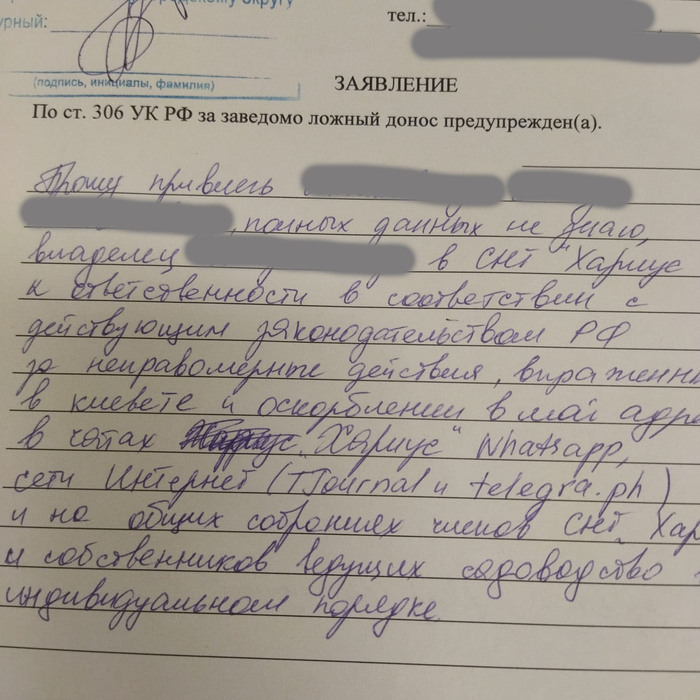 родскому округу
урный:
тел.:
(подпись, инициалы, фамилия)
ЗАЯВЛЕНИЕ
По ст. 306 УК РФ за заведомо ложный донос предупрежден(а).
Прошу привлечь
, полных данных не знаю,
владелец в СНТ "Хариус
к ответственности в соответствии с
действующим законодательством РФ
за неправомерные действия, выраженны
в клевете и оскорблении в мой адре
в чатах "Хариус" Whatsapp,
сети Интернет (TJournal и telegra.ph)
и на общих собраниях членов СНТ "Хар
и собственников ведущих садоводство
индивидуальном порядке